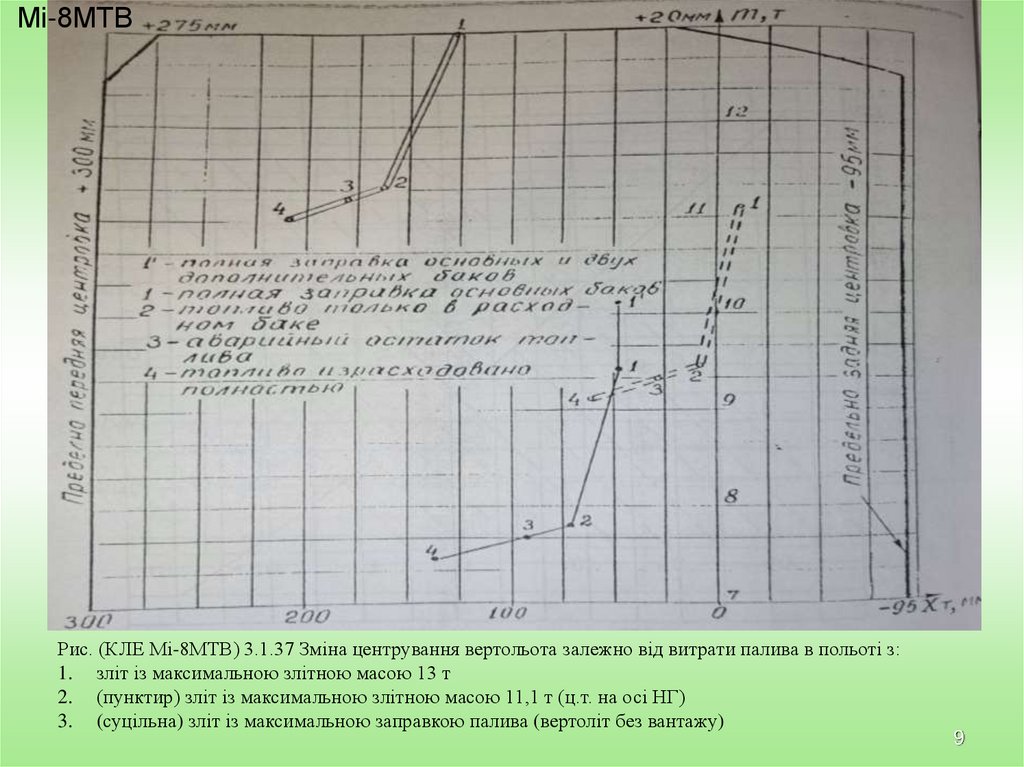 Mi-8МТВ
+275мм
1
+20мм
m, т
12
Предельно передняя центровка + 300 мм
Предельно задняя центровка - 95мм
3
2
4
11
1
1' - полная заправка основных и двух
дополнительных баков
1 - полная заправка основных баков
2 - топливо только в расход-
ном баке
3 - аварийный остаток топ-
лива
4 - топливо израсходовано
полностью
1'
10
1
2
3
4
9
8
2
3
4
7
300
200
100
0
-95
X̄т, мм
Рис. (КЛЕ Мі-8МТВ) 3.1.37 Зміна центрування вертольота залежно від витрати палива в польоті з:
1. зліт із максимальною злітною масою 13 т
2. (пунктир) зліт із максимальною злітною масою 11,1 т (ц.т. на осі НГ)
3. (суцільна) зліт із максимальною заправкою палива (вертоліт без вантажу)
9